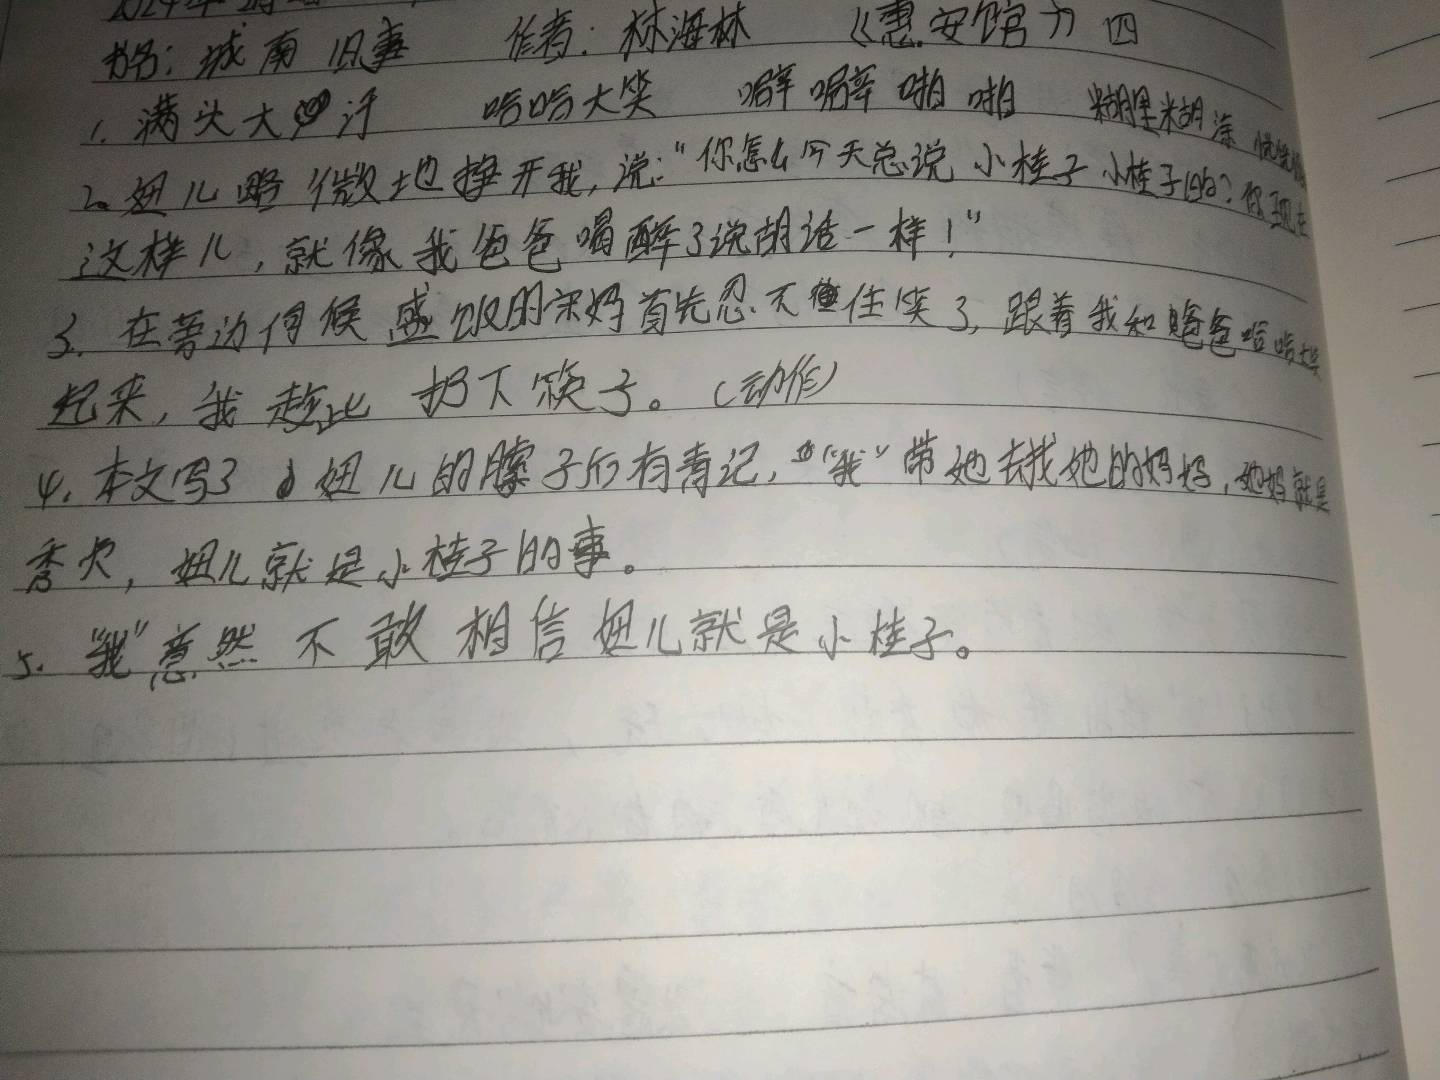 书名：城南旧事 作者：林海林 《惠安馆》四
1. 满头大汗 哈哈大笑 噼噼啪啪 糊里糊涂
2. 妞儿略微地挣开我，说：“你怎么今天总说小桂子小桂子的？你现在
这样儿，就像我爸爸喝醉了说胡话一样！”
3. 在旁边伺候盛饭的宋妈首先忍不住笑了，跟着我和爸爸哈哈大笑
起来，我趁此扔下筷子。（动作）
4. 本文写了妞儿的脖子后有青记，“我”带她去找她的妈妈，她妈就是
秀贞，妞儿就是小桂子的事。
5. “我”竟然不敢相信妞儿就是小桂子。